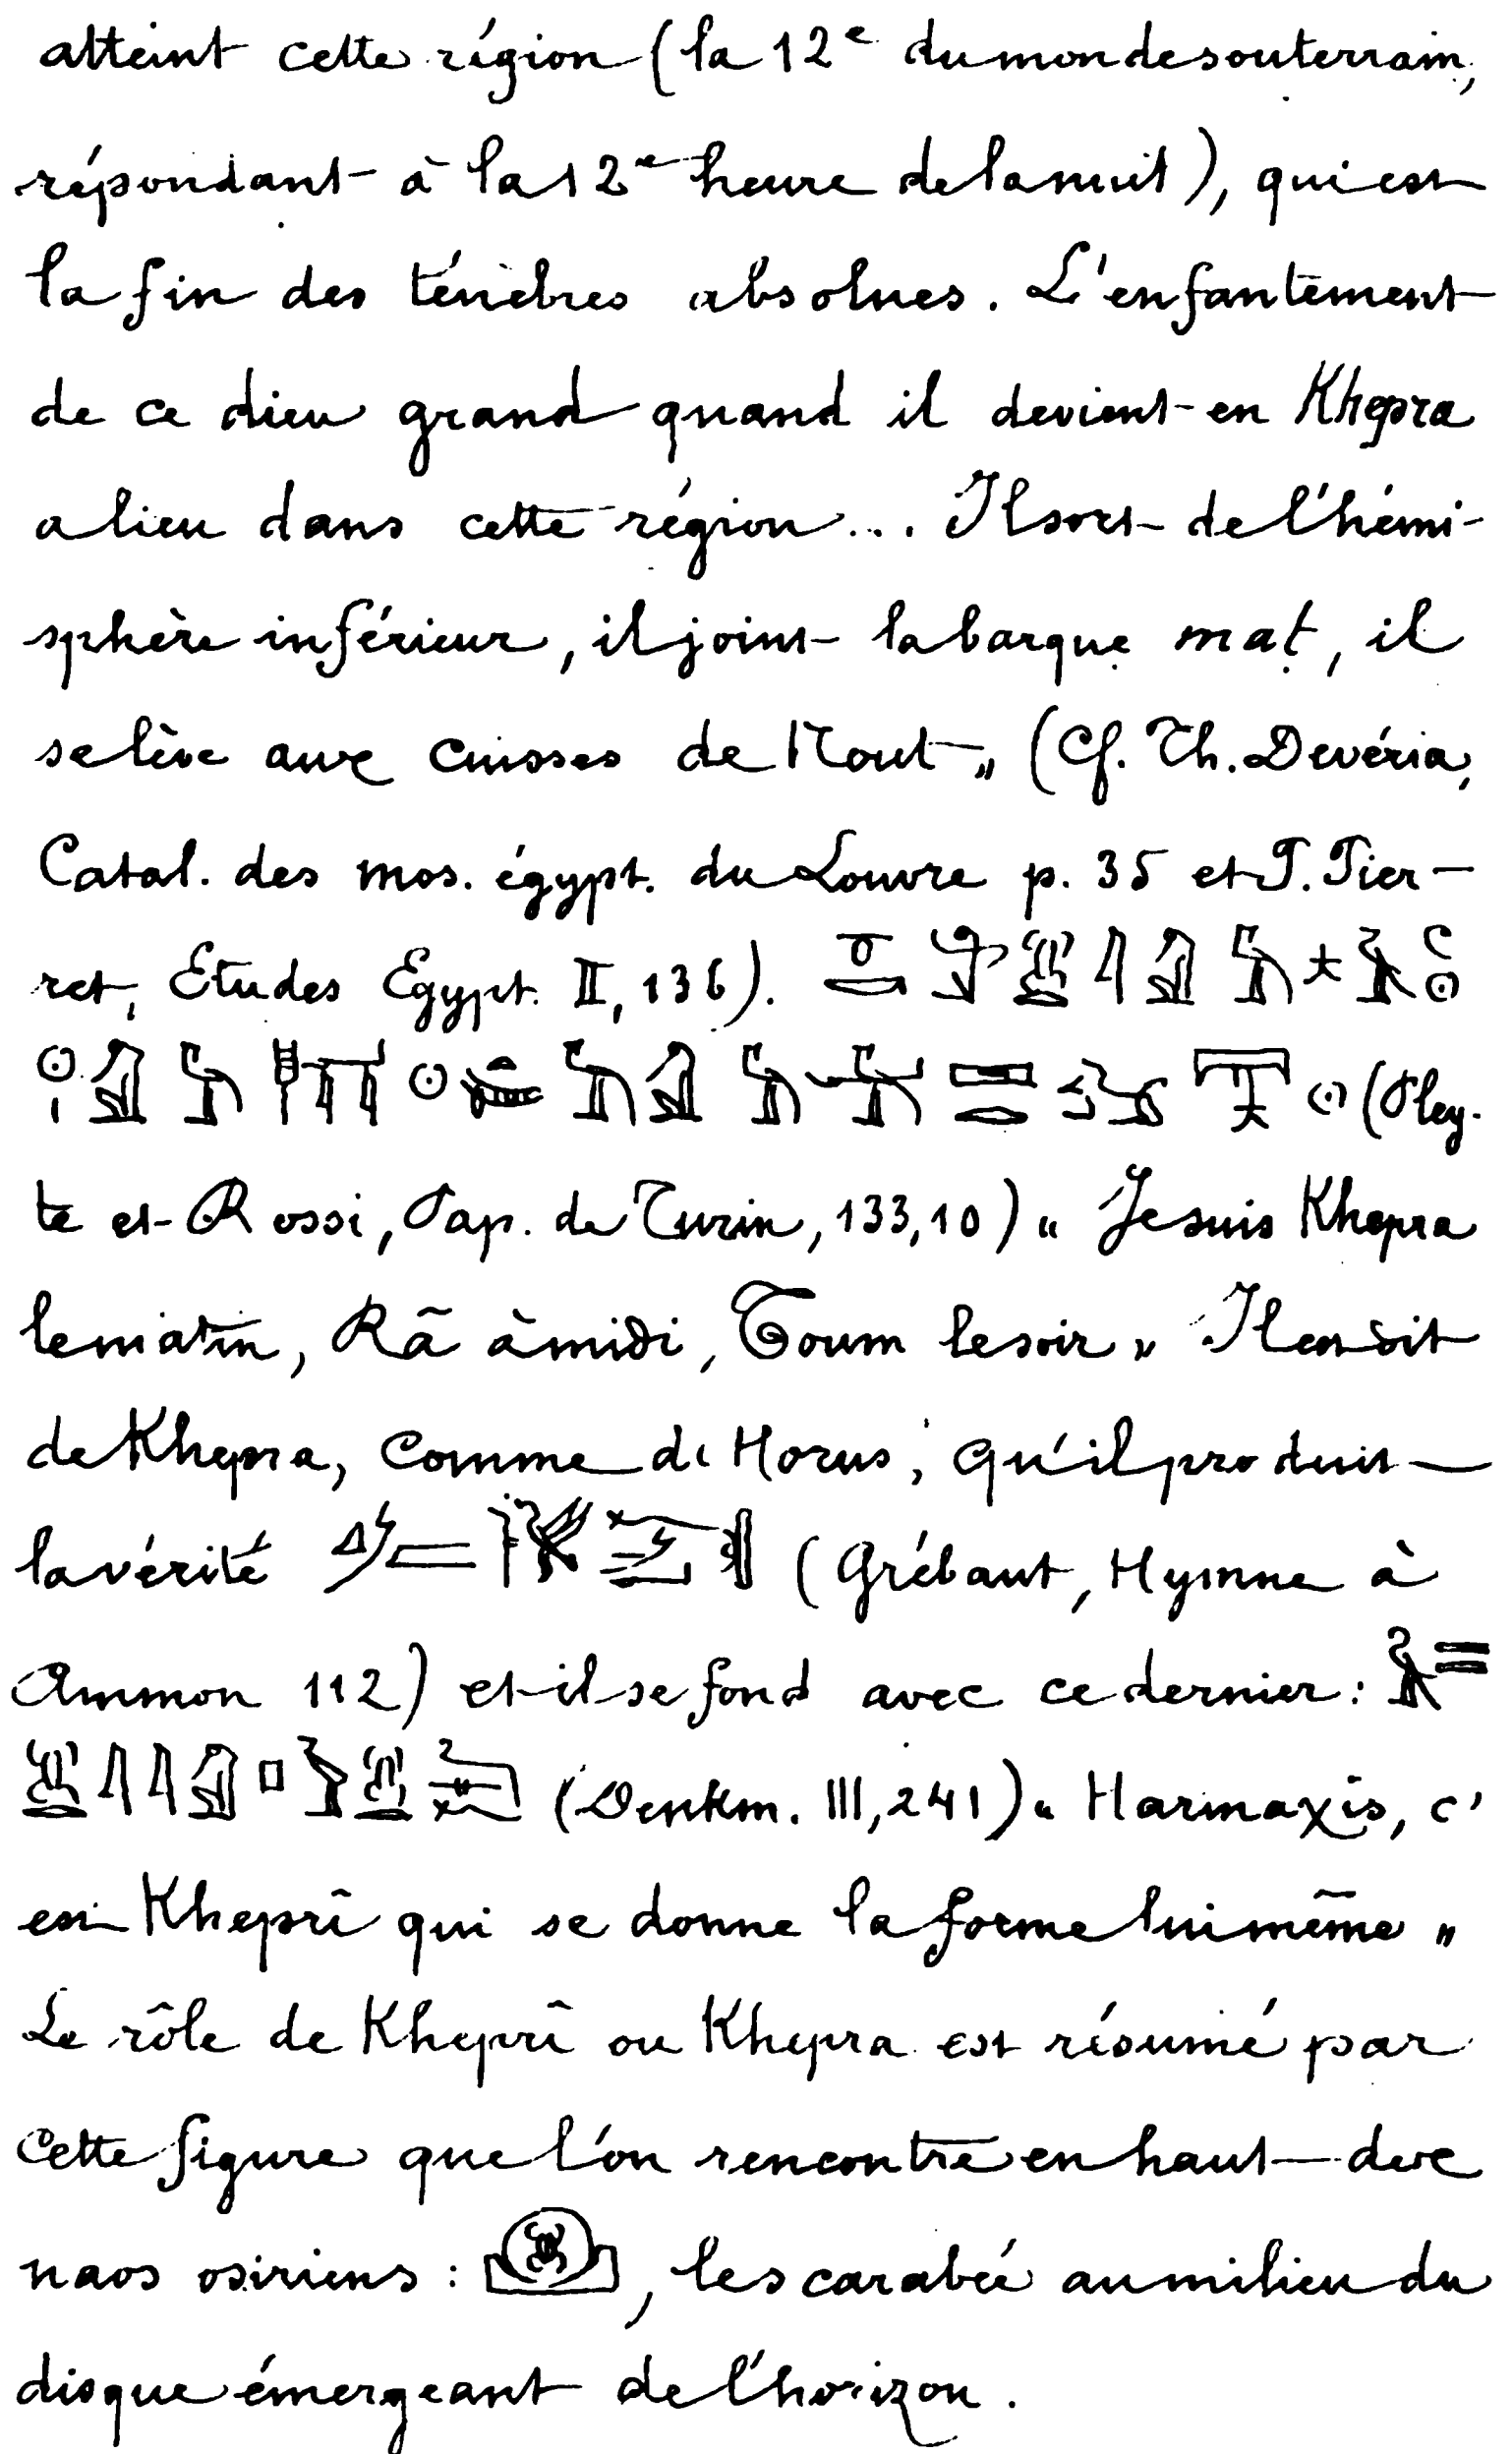 atteint cette région (la 12e du monde souterrain,
répondant à la 12e heure de la nuit), qui est
la fin des ténèbres absolues. L'enfantement
de ce dieu grand quand il devient en Khepra
a lieu dans cette région... Il sort de l'hémi-
sphère inférieur, il joint la barque mat, il
se lève aux cuisses de Nout „ (Cf. Th. Devéria,
Catal. des mss. égypt. du Louvre p. 35 et P. Pier-
ret, Etudes Egypt. II, 136).
(Pley-
te et Rossi, Pap. de Turin, 133,10) « Je suis Khepra
le matin, Râ à midi, Toum le soir » Il est dit
de Khepra, comme de Horus, qu'il produit
la vérité (Grébaut, Hymne à
Ammon 112) et il se fond avec ce dernier :
(Denkm. III, 241) « Harmaxis, c'
est Khepri qui se donne la forme lui même »
Le rôle de Kheprî ou Khepra est résumé par
cette figure que l'on rencontre en haut des
naos osiriens : , le scarabée au milieu du
disque émergeant de l'horizon.